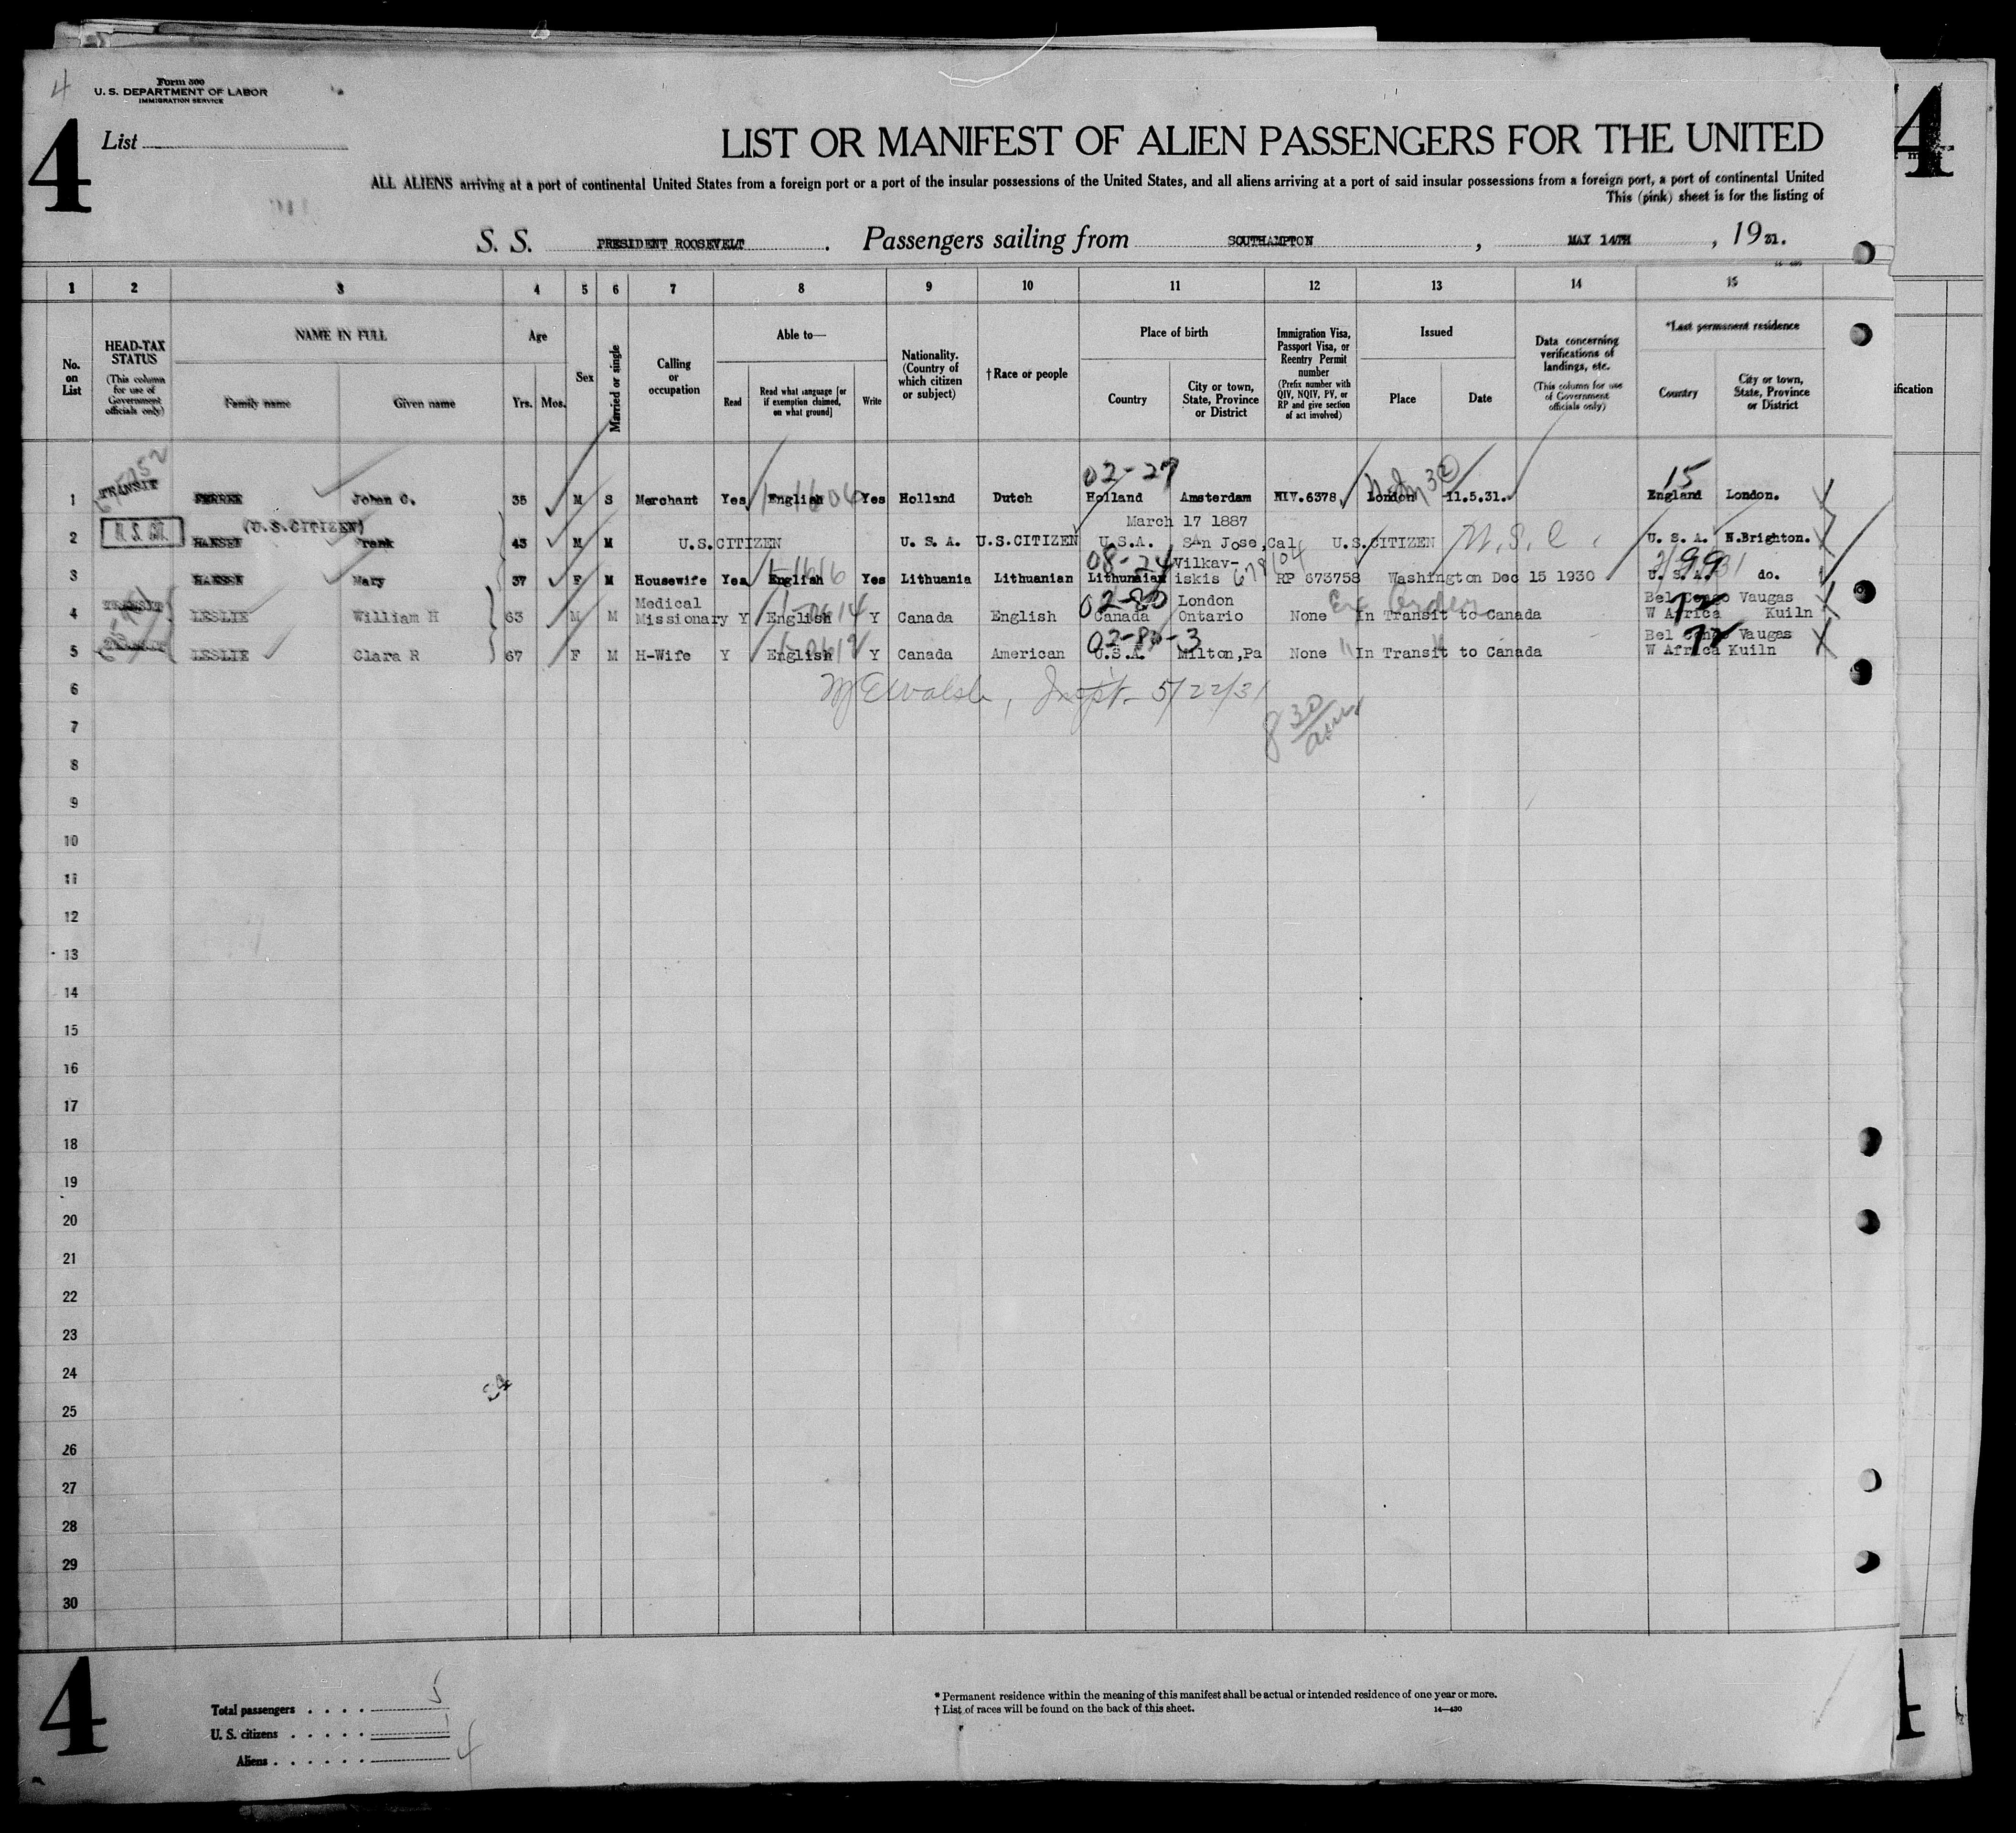 4
Form 500
U. S. DEPARTMENT OF LABOR
IMMIGRATION SERVICE
4 List
LIST OR MANIFEST OF ALIEN PASSENGERS FOR THE UNITED
4
ALL ALIENS arriving at a port of continental United States from a foreign port or a port of the insular possessions of the United States, and all aliens arriving at a port of said insular possessions from a foreign port, a port of continental United
This (pink) sheet is for the listing of
S. S. PRESIDENT ROOSEVELT. Passengers sailing from SOUTHAMPTON, MAY 14TH, 1931.
1 2 3 4 5 6 7 8 9 10 11 12 13 14 15
No. on List
HEAD-TAX STATUS
(This column for use of Government officials only)
NAME IN FULL
Family name Given name
Age
Yrs. Mos.
Sex
Married or single
Calling or occupation
Able to—
Read
Read what language [or if exemption claimed, on what ground]
Write
Nationality. (Country of which citizen or subject)
† Race or people
Place of birth
Country
City or town, State, Province or District
Immigration Visa, Passport Visa, or Reentry Permit number
(Prefix number with QIV, NQIV, PV, or RP and give section of act involved)
Issued
Place Date
Data concerning verifications of landings, etc.
(This column for use of Government officials only)
*Last permanent residence
Country
City or town, State, Province or District
ification
02-27 15
1 TRANSIT Johan C. 35 M S Merchant Yes English Yes Holland Dutch Holland Amsterdam NIV.6378. London 11.5.31. England London.
(U.S.CITIZEN) March 17 1887
2 U. S. CIT. HANSEN Frank 43 M M U.S.CITIZEN U. S. A. U.S.CITIZEN U.S.A. San Jose,Cal U.S.CITIZEN U.S.C. U. S. A. N.Brighton.
08-24 Vilkav- 99
3 HANSEN Mary 37 F M Housewife Yes English Yes Lithuania Lithuanian Lithunaian iskis RP 673758 Washington Dec 15 1930 U. S. A. do.
Medical 02-80 London Bel Congo Vaugas
4 TRANSIT LESLIE William H 63 M M Missionary Y English Y Canada English Canada Ontario None In Transit to Canada W Africa Kuiln
02-80-3 Bel Congo Vaugas
5 TRANSIT LESLIE Clara R 67 F M H-Wife Y English Y Canada American U.S.A. Milton,Pa None In Transit to Canada W Africa Kuiln
6 Walsh, Inspt. 5/22/31
7 8 30
8
9
10
11
12
13
14
15
16
17
18
19
20
21
22
23
24
25
26
27
28
29
30
4
Total passengers . . . . 5
U. S. citizens . . . . . 1
Aliens . . . . . . 4
* Permanent residence within the meaning of this manifest shall be actual or intended residence of one year or more.
† List of races will be found on the back of this sheet.
14—430